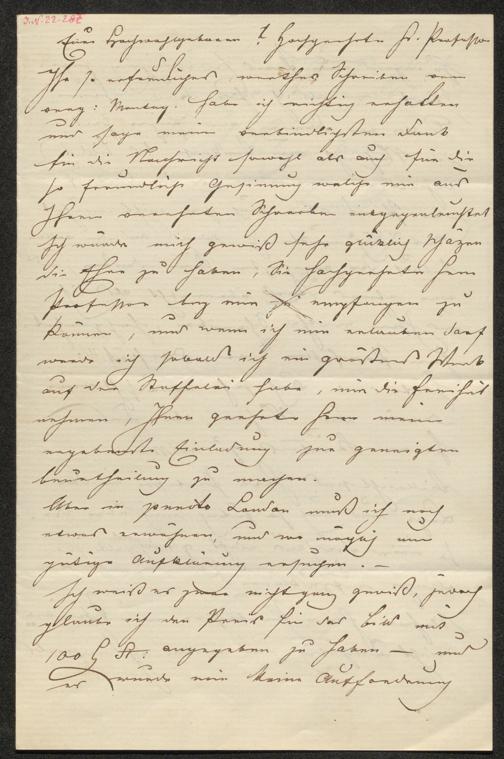 I.N. 22-287
Euer Hochwohlgeboren! Hochgeehrter Hr. Professor
Ihr so erfreuliches, werthes Schreiben vom
verg: Montag. habe ich richtig erhalten
und sage meinen verbindlichsten Dank
für die Nachricht sowohl als auch für die
so freundliche Gesinnung welche mir aus
Ihrem verehrten Schreiben entgegenleuchtet
Ich würde mich gewiß sehr glücklich schäzen
die Ehre zu haben, Sie hochgeehrter Herr
Professor bey mir empfangen zu
können, und wenn ich mir erlauben darf
werde ich sobald ich ein größeres Werk
auf der Staffelei habe, mir die Freiheit
nehmen, Ihnen geehrter Herr meine
ergebenste Einladung zur geneigten
Beurtheilung zu machen.
Aber in puncto muß ich noch
etwas erwähnen, und wo möglich um
gütige Aufklärung ersuchen. –
Ich weiß es zwar nicht ganz gewiß, jedoch
glaube ich den Preis für das Bild mit
100 angegeben zu haben – und
es wurde mir keine Aufforderung